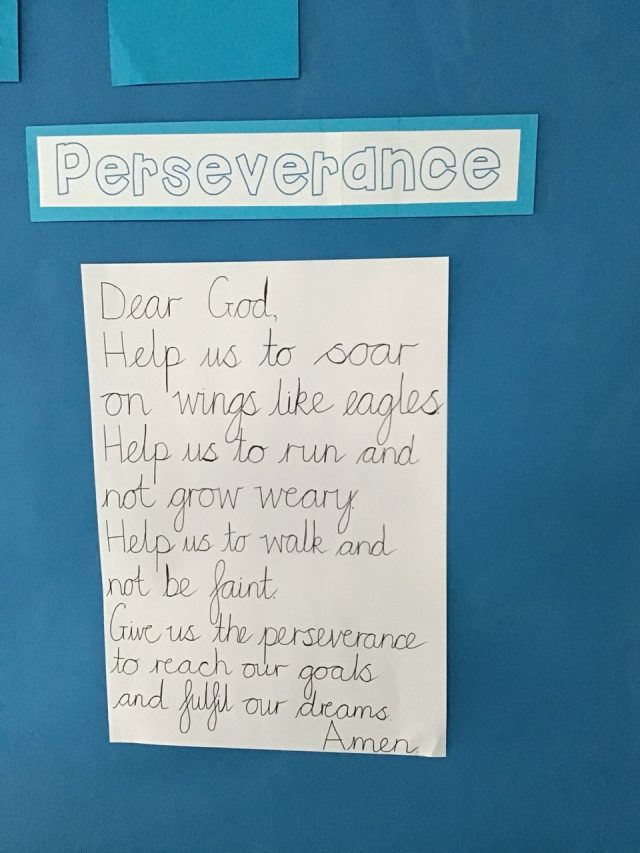 Perseverance
Dear God,
Help us to soar
on wings like eagles
Help us to run and
not grow weary.
Help us to walk and
not be faint.
Give us the perseverance
to reach our goals
and fulfil our dreams.
Amen.